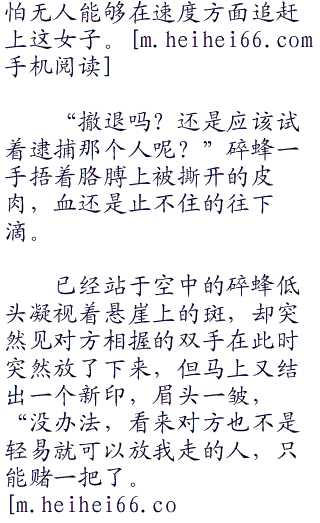 怕无人能够在速度方面追赶
上这女子。[m.heihei66.com
手机阅读]
“撤退吗？还是应该试
着逮捕那个人呢？”碎蜂一
手捂着胳膊上被撕开的皮
肉，血还是止不住的往下
滴。
已经站于空中的碎蜂低
头凝视着悬崖上的斑，却突
然见对方相握的双手在此时
突然放了下来，但马上又结
出一个新印，眉头一皱，
“没办法，看来对方也不是
轻易就可以放我走的人，只
能赌一把了。
[m.heihei66.co